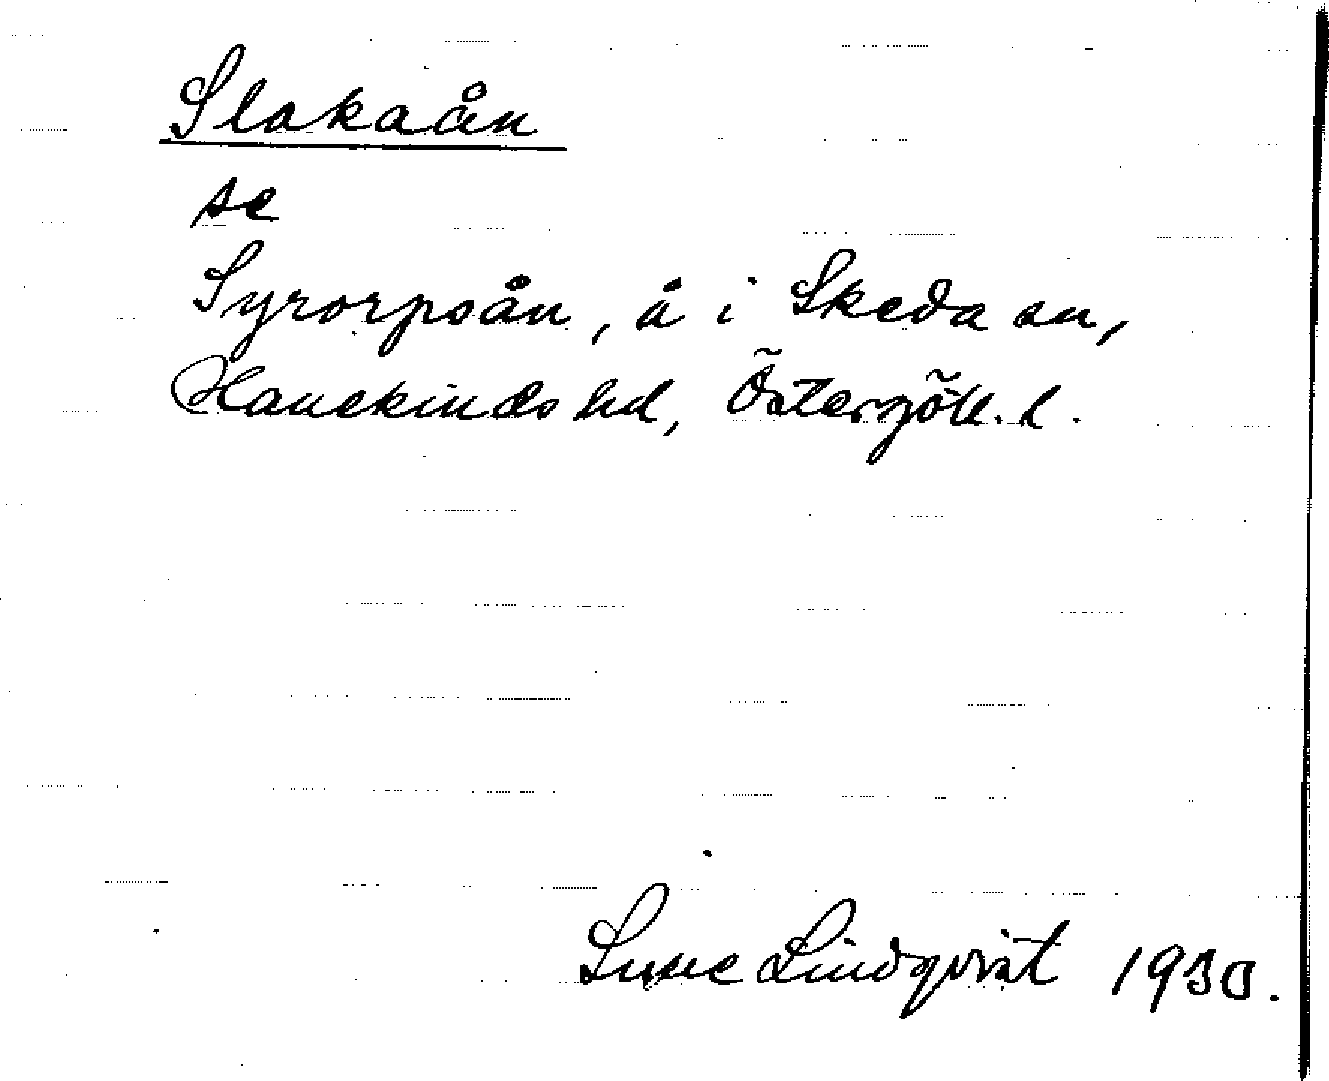 Slakaån
se
Syrorpsån, å i Skeda sn,
Hanekinds hd, Östergötl. l.
Sune Lindqvist 1930.